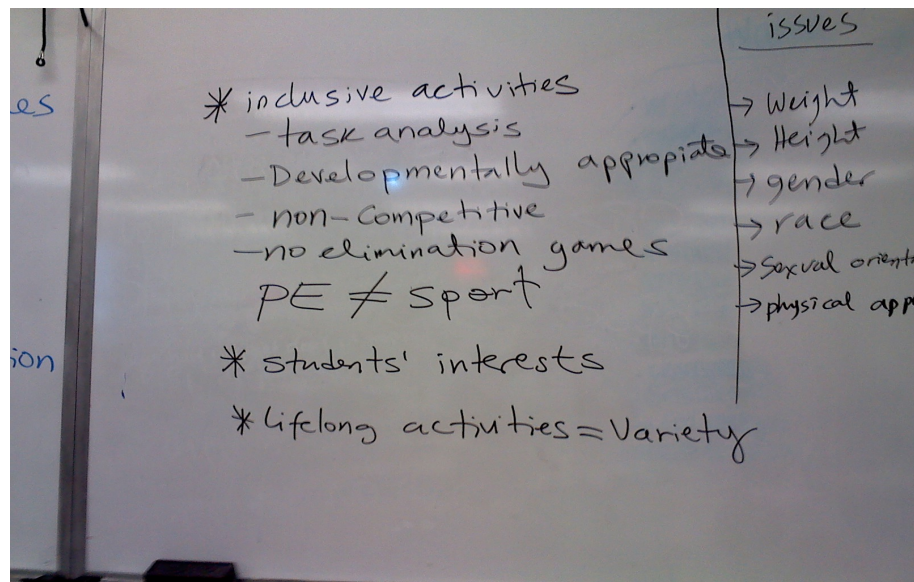 es
ion
* inclusive activities
- task analysis
- Developmentally appropiate
- non-Competitive
- no elimination games
PE ≠ Sport
* students' interests
* lifelong activities = Variety
issues
→ Weight
→ Height
→ gender
→ race
→ Sexual orient
→ physical app